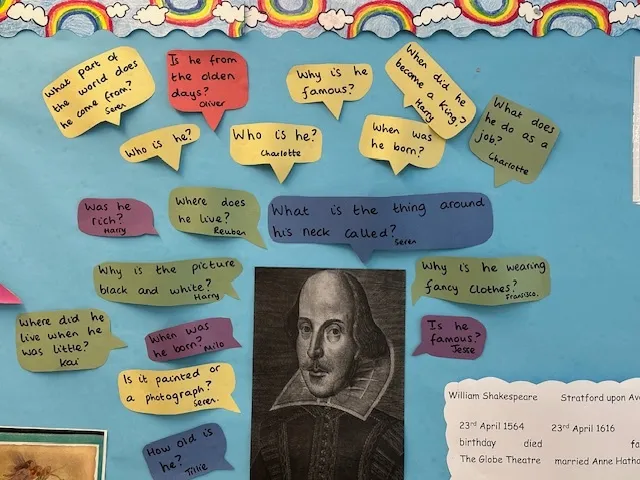 What part of
the world does
he come from?
Seren
Is he from
the olden
days?
Oliver
Why is he
famous?
When did he
become a king?
Harry
Who is he?
Who is he?
Charlotte
When was
he born?
What does
he do as a
job?
Charlotte
Was he
rich?
Harry
Where does
he live?
Reuben
What is the thing around
his neck called?
Seren
Why is the picture
black and white?
Harry
Why is he wearing
fancy clothes?
Francisco.
Where did he
live when he
was little?
Kai
When was
he born?
Milo
Is he
famous?
Jesse
Is it painted or
a photograph?
Seren.
How old is
he?
Tillie
William Shakespeare Stratford upon Av
23rd April 1564 23rd April 1616
birthday died fa
The Globe Theatre married Anne Hatha